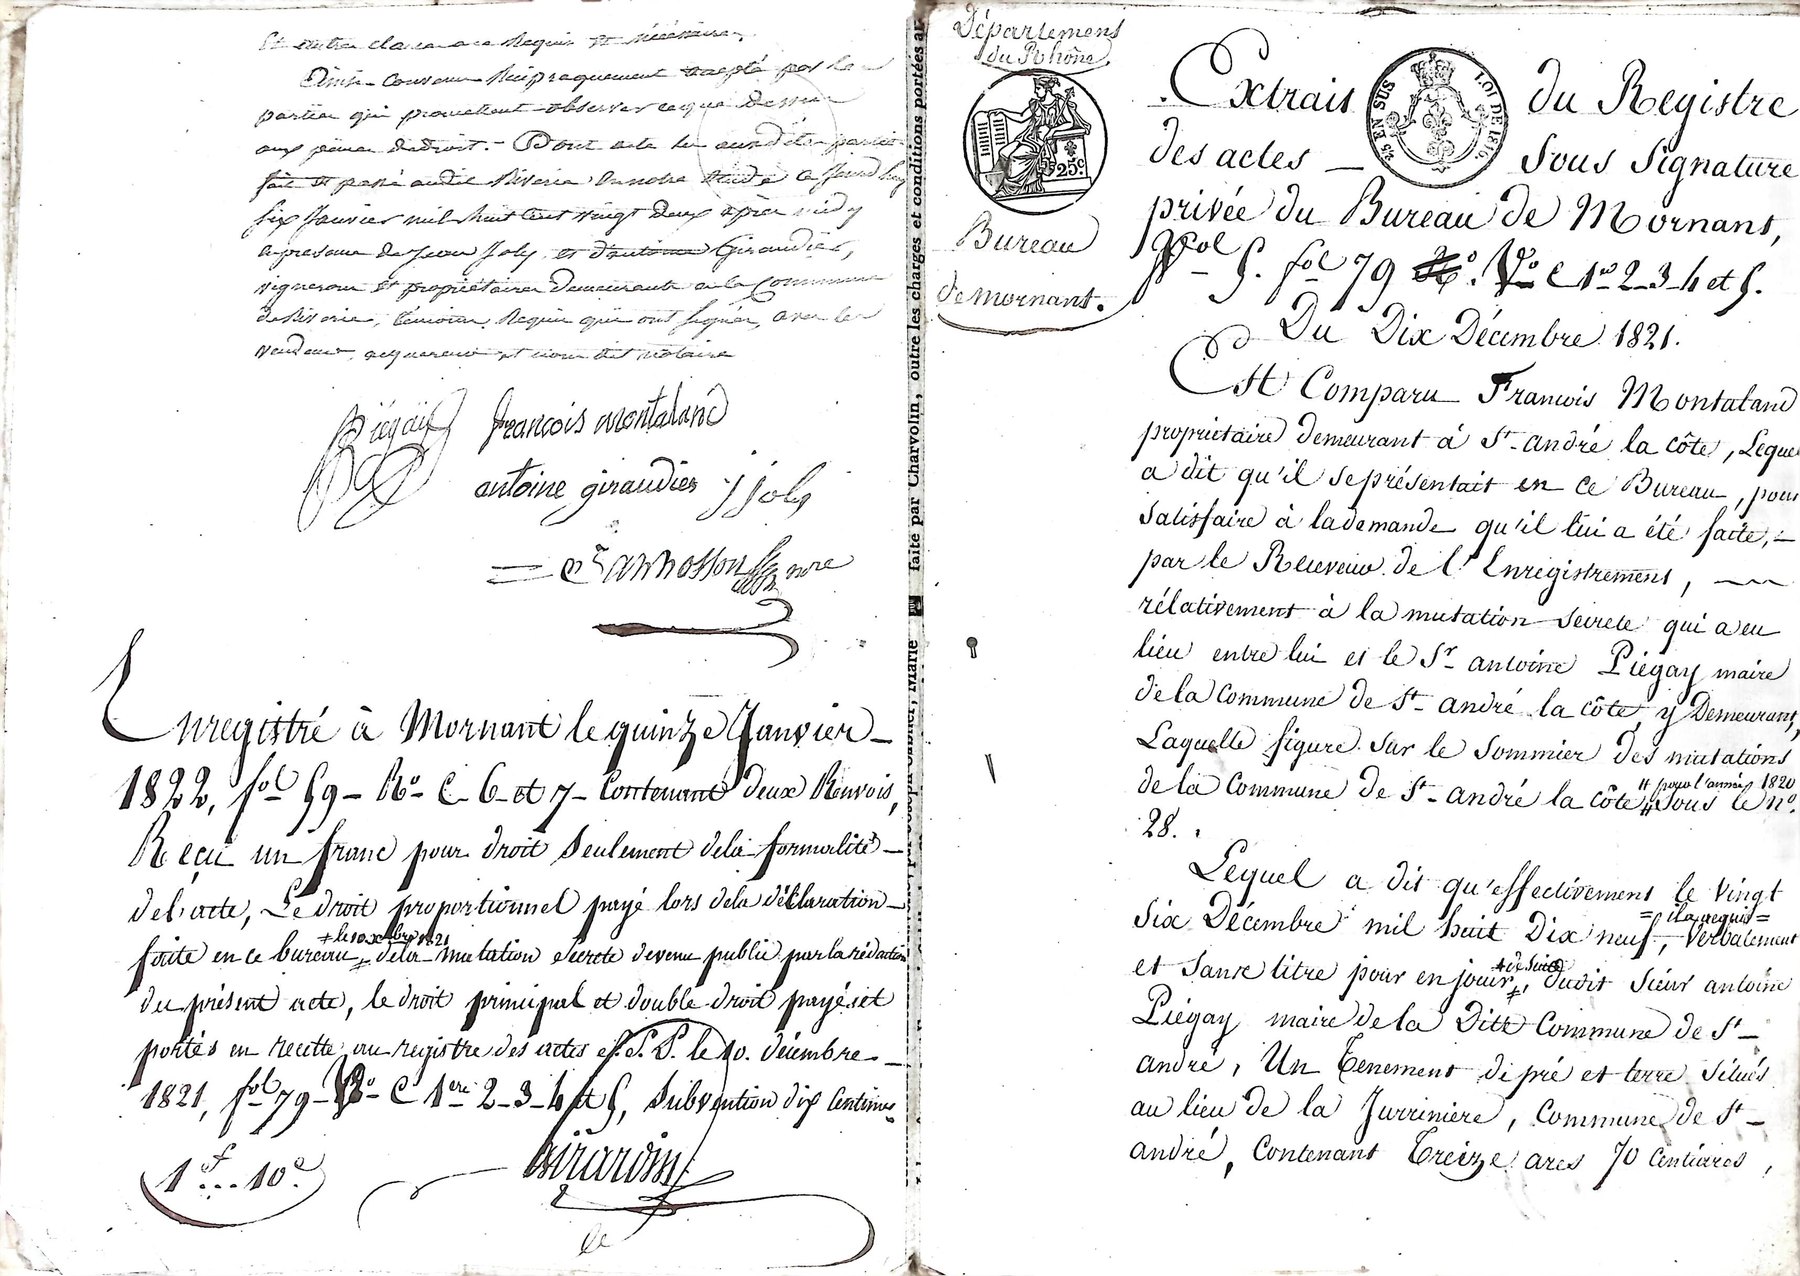 et autre clause ace Requis et nécéssaires
Ainsi Convenu Réciproquement accepté par les
parties qui promettent observer ce que Dessus
aux peines de droit. - Dont acte les susdites parties
fait et passé audit Riverie En notre étude ce Jourd'huy
six Janvier mil huit cent vingt deux après midy
apresance de Jean Joly et d'antoine Giraudier,
vignerons et propriétaires demeurants en la Commune
de Riverie, témoins Requis qui ont signés, avec les
vendeur, acquereur et nous dit notaire
Piégaÿ françois montaland
antoine giraudier j joly
nre
Enregistré à Mornant le quinze Janvier
1822, fol 59 Ro C 6 et 7 Contenant deux Renvois,
Reçu un franc pour droit Seulement dela formalité
del'acte, Le droit proportionnel payé lors dela déclaration
+ le 10 Xbre 1821
faite en ce bureau, + dela mutation secrete devenue public par la rédaction
du présent acte, le droit principal et double droit payés et
portés en recette au registre des actes s. S. P. le 10. décembre
1821, fol 79 Vo C 1ere 2 3 4 et 5, Subvention dix Centimes
Girardin
1f... 10c
le
faite par Charvolin, outre les charges et conditions portées au
Département
du Rhône
5/25c.
Bureau
de mornant.
2/5 EN SUS LOI DE 1816.
Extrait du Registre
des actes Sous Signature
privée du Bureau de Mornant,
Vol 5. fol 79 Vo C 1re 2 3 4 et 5.
Du Dix Décembre 1821.
Est Comparu François Montaland
proprietaire demeurant à St andré la côte, Lequel
a dit qu'il se présentait en ce Bureau, pour
Satisfaire à la demande qu'il lui a été faite,
par le Receveur de l'Enregistrement,
rélativement à la mutation Secrete qui a eu
lieu entre lui et le Sr antoine Piégay maire
de la Commune de St andré la côte, y Demeurant,
Laquelle figure sur le Sommier des mutations
# pour l'année 1820
de la Commune de St andré la côte # Sous le no.
28.
Lequel a dit qu'effectivement le vingt
= il a acquis =
Six Décembre mil huit Dix neuf, verbalement
+ de suite
et sans titre pour en jouir +, dudit Sieur antoine
Piégay maire de la Ditte Commune de St
andré, Un Tenement de pré et terre Situés
au lieu de la Jurriniere, Commune de St
andré, Contenant Treize ares 70 Centiares,